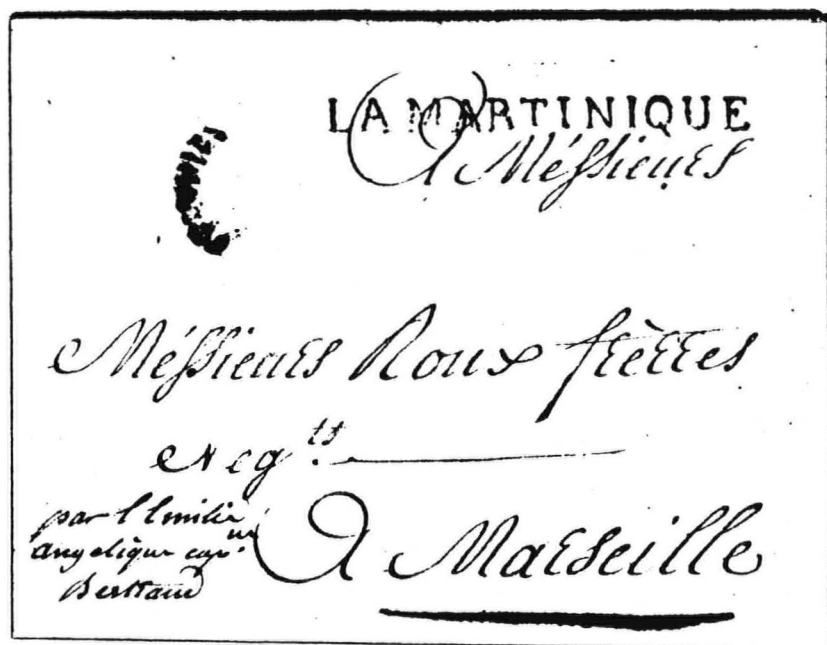 LA MARTINIQUE
A Méssieurs
Méssieurs Roux frères
Neg.ts
par l'Emilie
angelique cap.ne
Bertrand
A Marseille